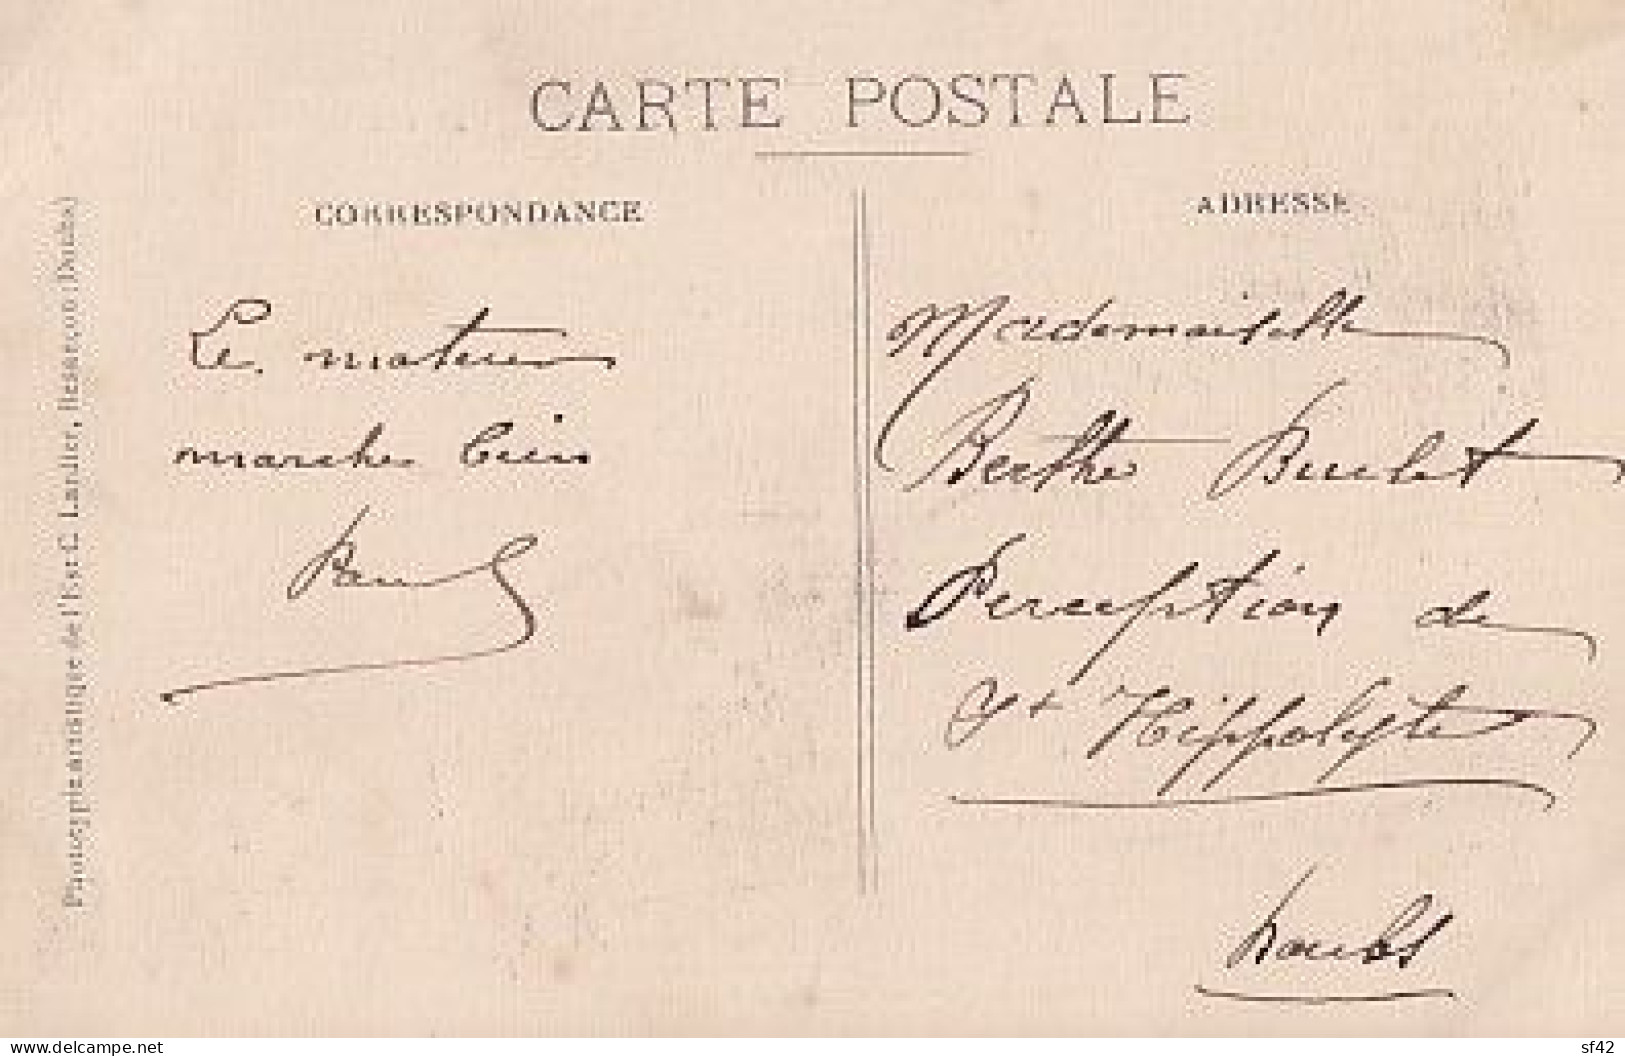 CARTE POSTALE
CORRESPONDANCE
ADRESSE
Le moteur
marche bien
Paul
Mademoiselle
Berthe
Perception de
St Hippolyte
Doubs
Phototypie artistique de l'Est C. Lardier, Besançon (Doubs)
www.delcampe.net
sf42